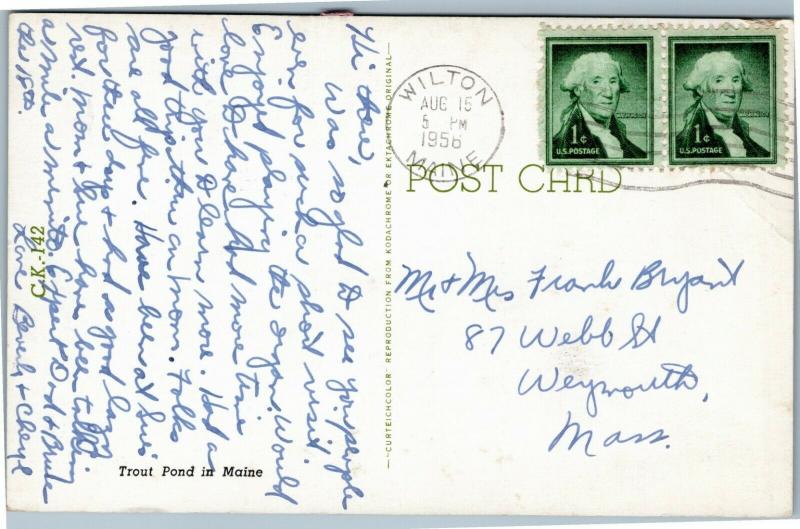 Hi there,
Was so glad to see you people
even for such a short visit.
Enjoyed playing the organ. Would
love to have had more time
with you & learn more. Had a
good trip thru on mon. Folks
are all fine. Have been at
for three days & had a good
rest. Mom & have been talking
a mile a minute. Expect Dad &
the 18th.
Love Beverly & Cheryl
C.K.-142
Trout Pond in Maine
—CURTEICHCOLOR® REPRODUCTION FROM KODACHROME OR EKTACHROME ORIGINAL—
WILTON
AUG 15
5 PM
1956
MAINE
1¢
U.S. POSTAGE
WASHINGTON
1¢
U.S. POSTAGE
WASHINGTON
POST CARD
Mr & Mrs Frank Bryant
87 Webb St
Weymouth,
Mass.